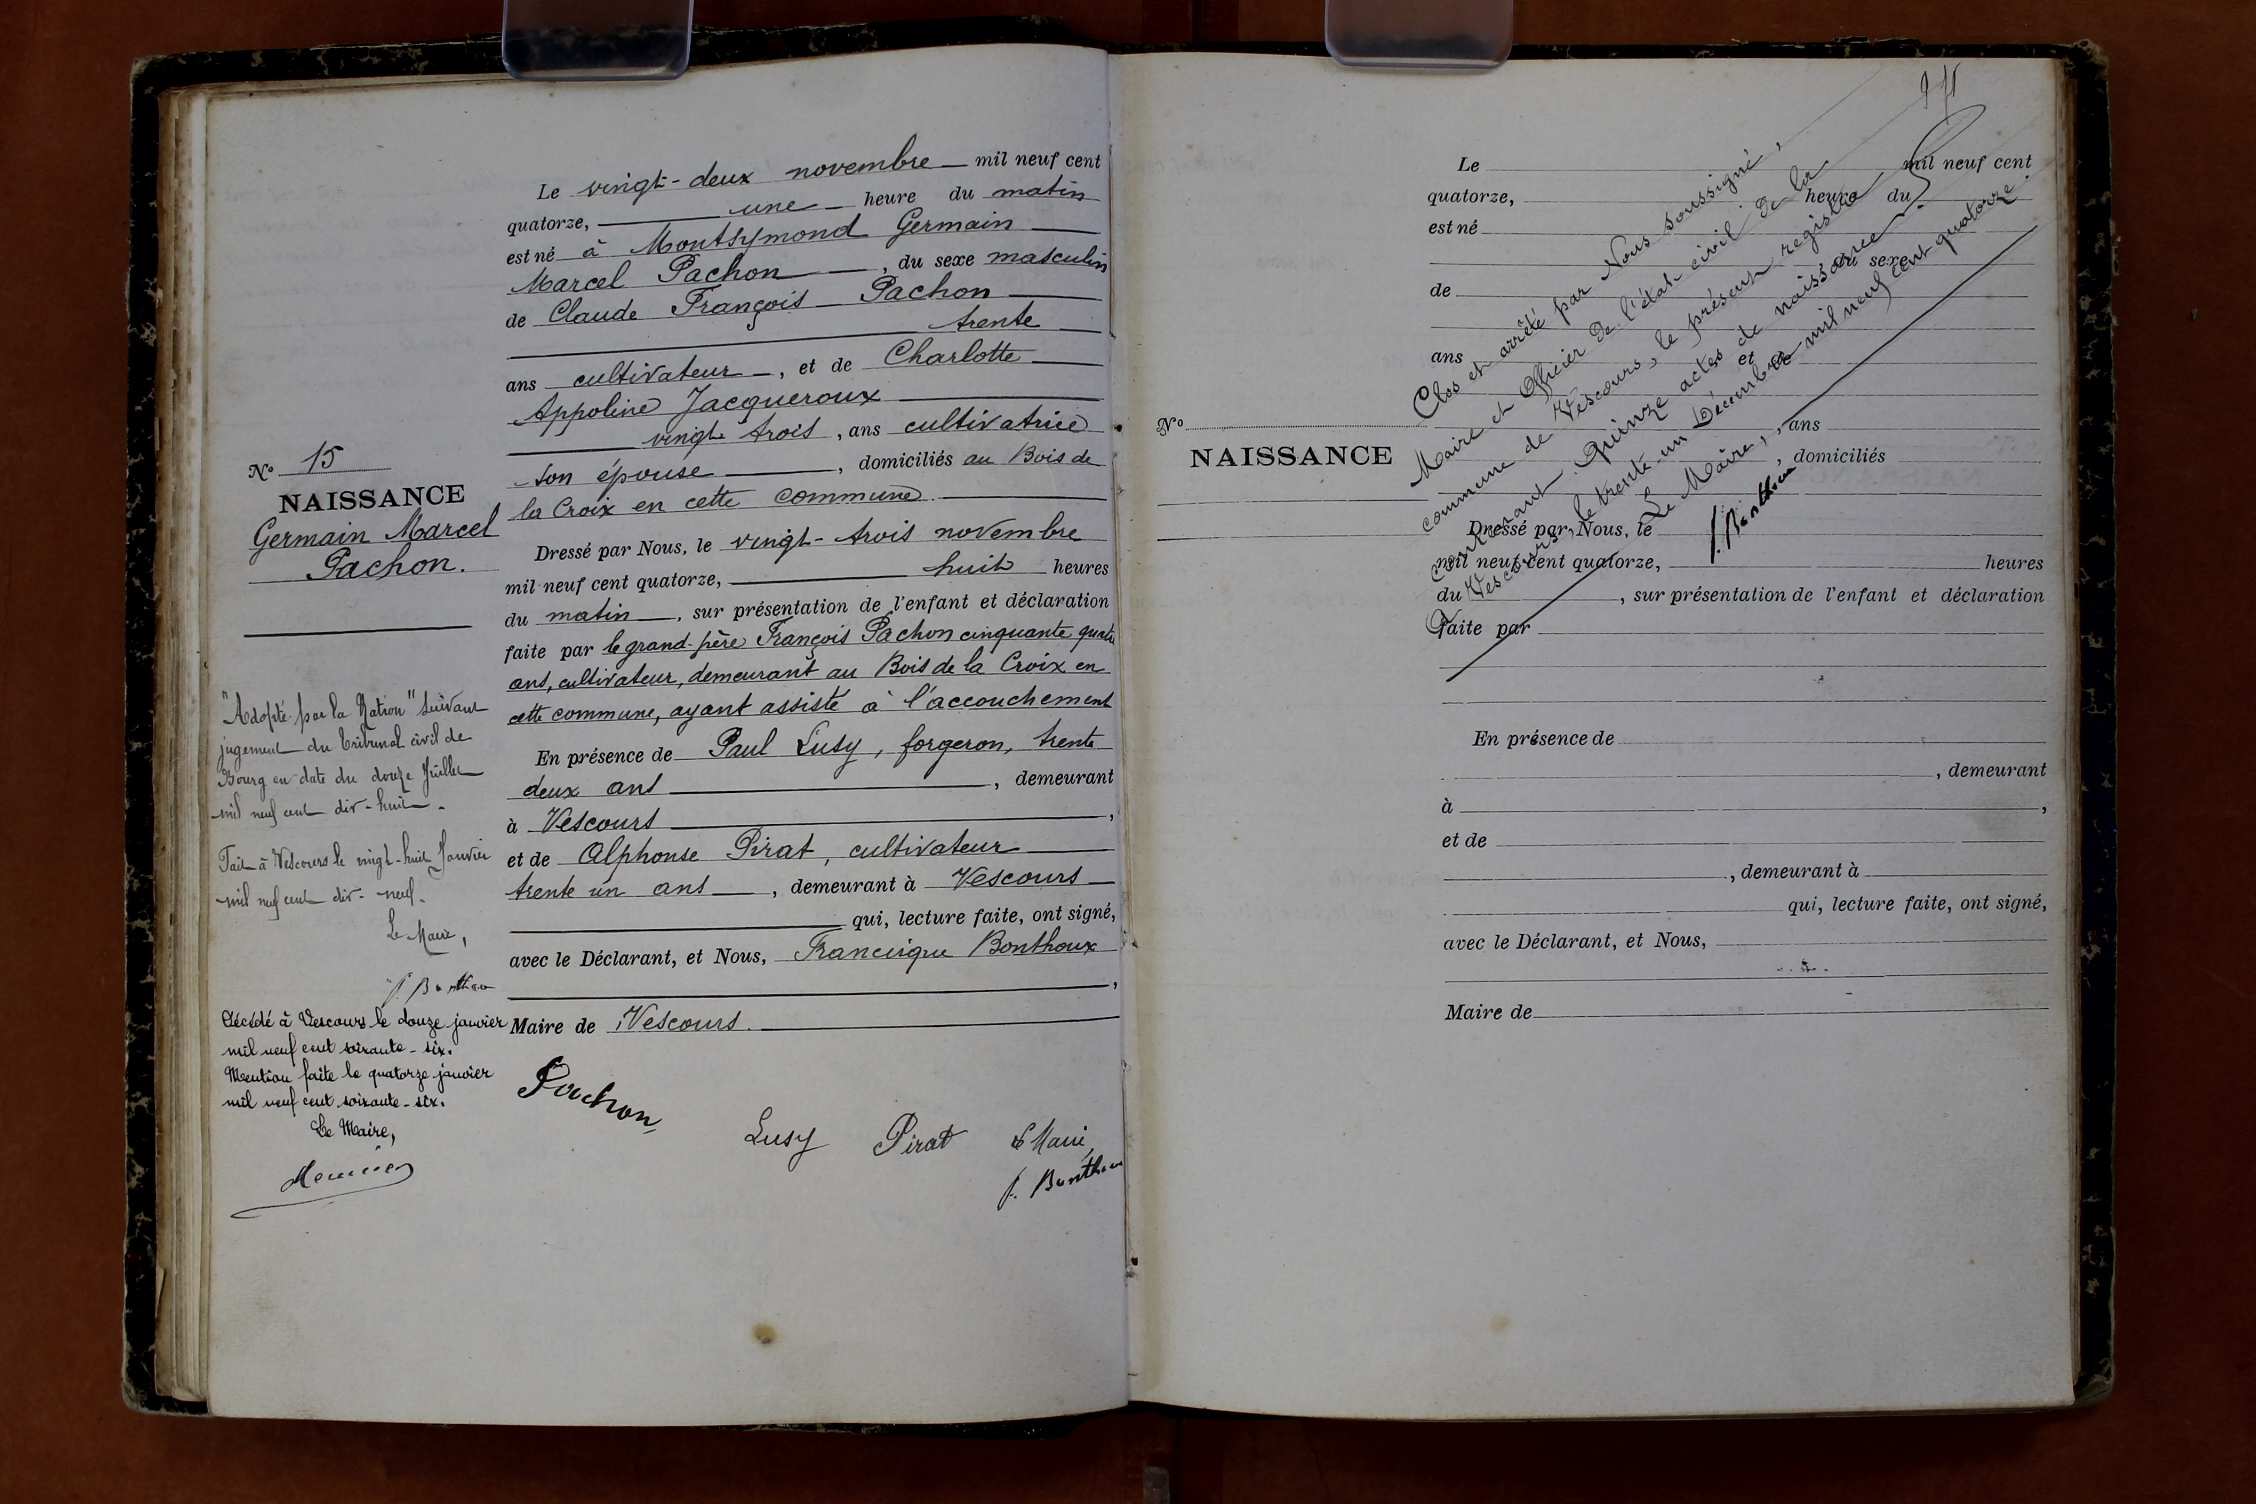 Le vingt-deux novembre mil neuf cent
quatorze, une heure du matin
est né à Montsymond Germain
Marcel Pachon, du sexe masculin
de Claude François Pachon
trente
ans cultivateur, et de Charlotte
Appoline Jacqueroux
vingt trois, ans cultivatrice
son épouse, domiciliés au Bois de
la Croix en cette commune.
Dressé par Nous, le vingt-trois novembre
mil neuf cent quatorze, huit heures
du matin, sur présentation de l'enfant et déclaration
faite par le grand-père François Pachon cinquante quatre
ans, cultivateur, demeurant au Bois de la Croix en
cette commune, ayant assisté à l'accouchement
En présence de Paul Lusy, forgeron, trente
deux ans, demeurant
à Vescours,
et de Alphonse Pirat, cultivateur
trente un ans, demeurant à Vescours
qui, lecture faite, ont signé,
avec le Déclarant, et Nous, Francisque Bonthoux
,
Maire de Vescours.
Pachon
Lusy Pirat Le Maire,
f. Bonthoux
No 15
NAISSANCE
Germain Marcel
Pachon.
"Adopté par la Nation" suivant
jugement du Tribunal civil de
Bourg en date du douze Juillet
mil neuf cent dix-huit.
Fait à Vescours le vingt-huit Janvier
mil neuf cent dix-neuf.
Le Maire,
f. Bonthoux
Décédé à Vescours le douze janvier
mil neuf cent soixante-six.
Mention faite le quatorze janvier
mil neuf cent soixante-six.
Le Maire,
No
NAISSANCE
Le mil neuf cent
quatorze, heure du
est né
, du sexe
de
ans et de
, ans
, domiciliés
Dressé par Nous, le
mil neuf cent quatorze, heures
du , sur présentation de l'enfant et déclaration
faite par
En présence de
, demeurant
à ,
et de
, demeurant à
qui, lecture faite, ont signé,
avec le Déclarant, et Nous,
Maire de
Clos et arrêté par Nous soussigné,
Maire et Officier de l'état civil de la
commune de Vescours, le présent registre
contenant Quinze actes de naissance.
A Vescours, le trente-un Décembre mil neuf cent quatorze.
Le Maire,
f. Bonthoux